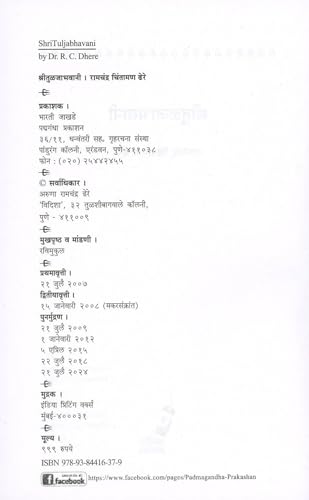 ShriTuljabhavani
by Dr. R. C. Dhere
श्रीतुळजाभवानी । रामचंद्र चिंतामण ढेरे
प्रकाशक ।
भारती जाखडे
पद्मगंधा प्रकाशन
३६/११, धन्वंतरी सह. गृहरचना संस्था
पांडुरंग कॉलनी, एरंडवन, पुणे-४११०३८
फोन : (०२०) २५४४२४५५
© सर्वाधिकार ।
अरुणा रामचंद्र ढेरे
'विदिशा', ३२ तुळशीबागवाले कॉलनी,
पुणे - ४११००९
मुखपृष्ठ व मांडणी ।
रविमुकुल
प्रथमावृत्ती ।
२१ जुलै २००७
द्वितीयावृत्ती ।
१५ जानेवारी २००८ (मकरसंक्रांत)
पुनर्मुद्रण ।
२१ जुलै २००९
१ जानेवारी २०१२
५ एप्रिल २०१५
२२ जुलै २०१८
२१ जुलै २०२४
मुद्रक ।
इंडिया प्रिंटिंग वर्क्स
मुंबई-४०००३१
मूल्य ।
९९९ रुपये
ISBN 978-93-84416-37-9
facebook https://www.facebook.com/pages/Padmagandha-Prakashan